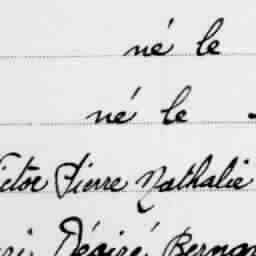 né le
né le
ictor Pierre Nathalie
ri Désiré Bernar